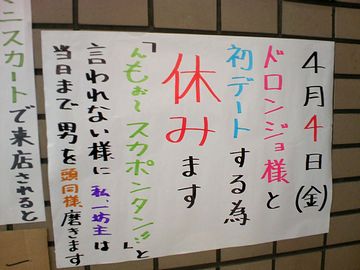 4月4日(金)
ドロンジョ様と
初デートする為
休みます
「んもぉ～スカポンタン!!」と
言われない様に私、一坊主は
当日まで男を頭同様磨きます
ニスカートで来店されると